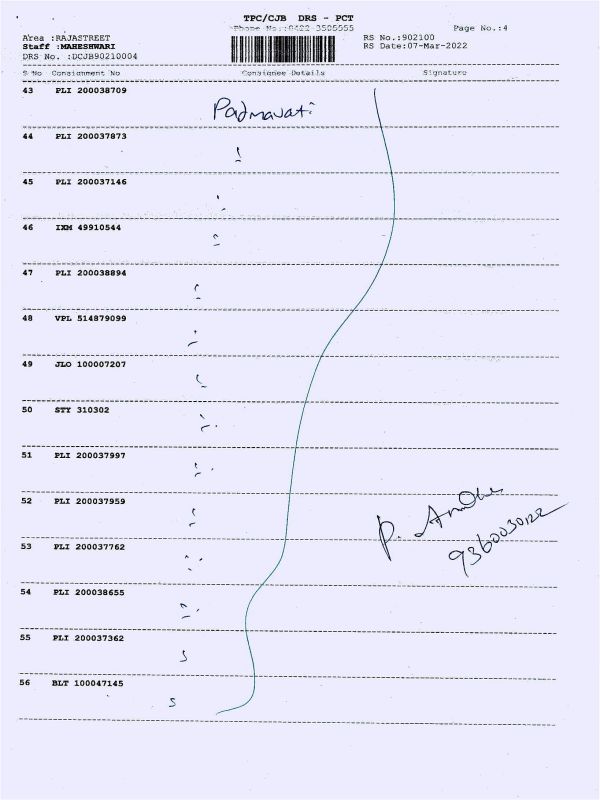 TPC/CJB DRS - PCT
Phone No.:0422-3505555
Page No.:4
Area :RAJASTREET
RS No.:902100
Staff :MAHESHWARI
RS Date:07-Mar-2022
DRS No. :DCJB90210004
S No Consignment No Consignee Details Signature
43 PLI 200038709
Padmavati
44 PLI 200037873
45 PLI 200037146
46 IXM 49910544
47 PLI 200038894
48 VPL 514879099
49 JLO 100007207
50 STY 310302
51 PLI 200037997
52 PLI 200037959
P.
53 PLI 200037762
54 PLI 200038655
55 PLI 200037362
56 BLT 100047145